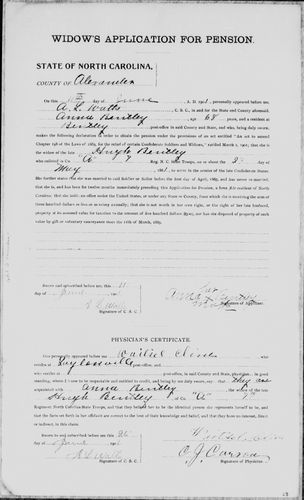 WIDOW'S APPLICATION FOR PENSION.
STATE OF NORTH CAROLINA,
COUNTY OF Alexander
On this day of June A. D. 1901, personally appeared before me,
A. L. Watts C. S. C., in and for the State and County aforesaid,
Anna Bentley age 68 years, and a resident at
Bentley post-office in said County and State, and who, being duly sworn,
makes the following declaration in order to obtain the pension under the provisions of an act entitled "An act to amend
Chapter 198 of the Laws of 1889, for the relief of certain Confederate Soldiers and Widows," ratified March 1901; that she
is the widow of the late Hugh Bentley
who enlisted in Co. Reg. N. C. State Troops, on or about the
May 1861, to serve in the armies of the late Confederate States.
She further states that she was married to said Soldier or Sailor before the first day of April, 1865, and has never re-married,
that she is, and has been for twelve months immediately preceding this Application for Pension, a bona fide resident of North
Carolina; that she holds no office under the United States, or under any State or County, from which she is receiving the sum of
three hundred dollars as fees or as salary annually; that she is not worth in her own right, or the right of her late husband,
property at its assessed value for taxation to the amount of five hundred dollars ($500), nor has she disposed of property of such
value by gift or voluntary conveyance since the 11th of March, 1885.
Sworn and subscribed before me, this 11
day of June
A L Watts
Signature of C. S. C.
her
Anna Bentley
Signature of Applicant.
PHYSICIAN'S CERTIFICATE.
Also personally appeared before me
resides at Taylorsville post-office, in said County and State, physician, in good
standing, whom I know to be respectable and entitled to credit, and being by me duly sworn, say that they are
acquainted with Anna Bentley the widow of the late
Hugh Bentley of Co.
Regiment North Carolina State Troops, and that they believe her to be the identical person she represents herself to be, and that
the facts set forth in her affidavit are correct to the best of their knowledge and belief; and that they have no interest, direct or
indirect, in this claim.
Sworn and subscribed before me, this
day of June
A L Watts
Signature of C. S. C.
O. J. Carson